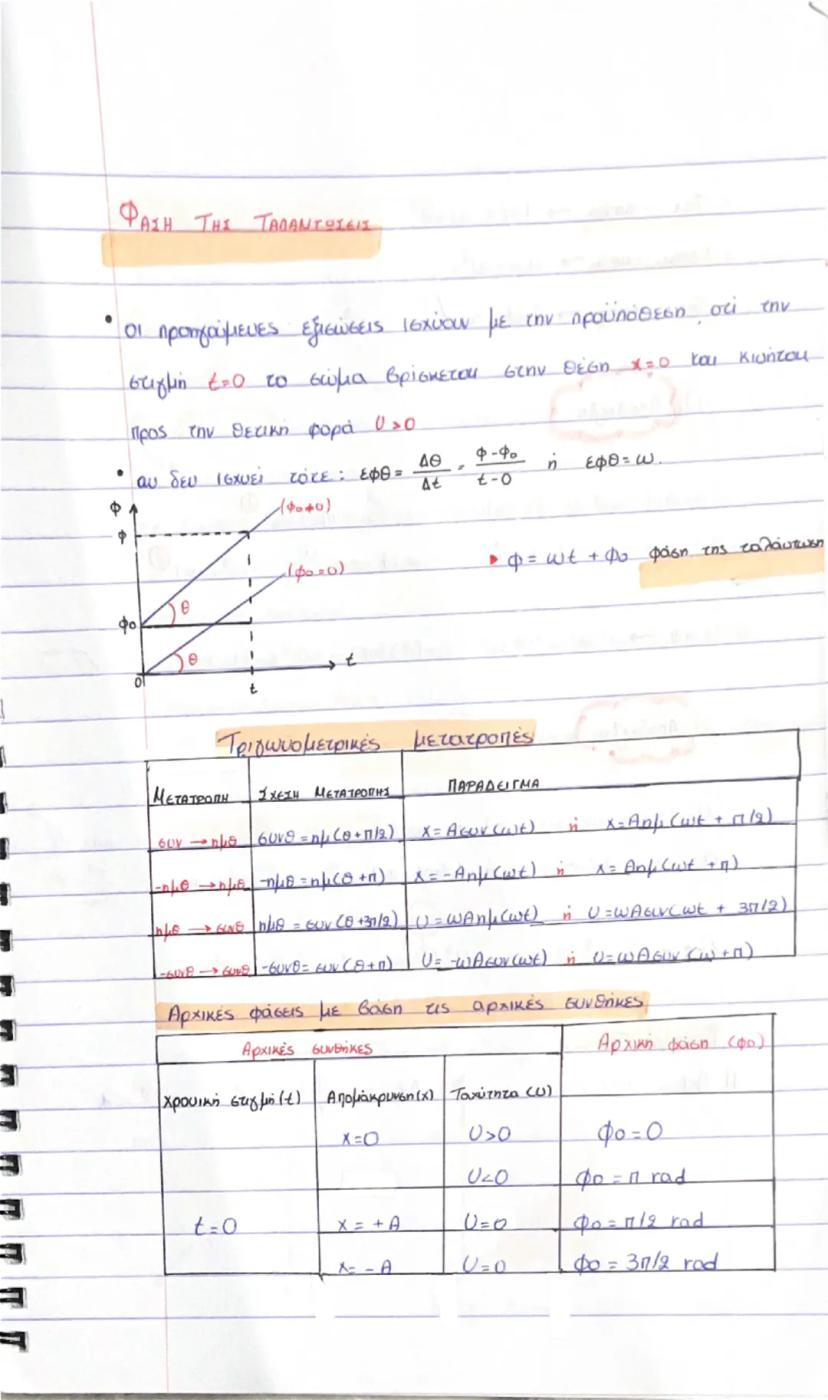 ΦΑΣΗ ΤΗΣ ΤΑΛΑΝΤΩΣΕΙΣ
• οι προηγούμενες εξισώσεις ισχύουν με την προϋπόθεση οτί την
στιγμή t=0 το σώμα βρίσκεται στην θέση x=0 και κινήται
προς την θετική φορά υ>0
• αν δεν ισχυεί τότε: εφθ = Δθ/Δt = φ-φ₀/t-0 ή εφθ=ω.
φ
(φ₀≠0)
φ
(φ₀=0)
▸ φ = ωt + φ₀ φάση της ταλάντωση
φ₀
θ
θ
0
t
t
Τριγωνομετρικές μετατροπές
ΜΕΤΑΤΡΟΠΗ ΣΧΕΣΗ ΜΕΤΑΤΡΟΠΗΣ ΠΑΡΑΔΕΙΓΜΑ
συν → ημθ συνθ = ημ(θ+π/2) x = Ασυν(ωt) ή x=Αημ(ωt + π/2)
-ημθ → ημθ -ημθ=ημ(θ+π) x = -Αημ(ωt) ή x = Αημ(ωt +π)
ημθ → συνθ ημθ = συν(θ+3π/2) υ=ωΑημ(ωt) ή υ=ωΑσυν(ωt + 3π/2)
-συνθ → συνθ -συνθ= συν(θ+π) υ= -ωΑσυν(ωt) ή υ=ωΑσυν(ω+π)
Αρχικές φάσεις με βάση τις αρχικές συνθήκες
Αρχικές συνθήκες Αρχική φάση (φ₀)
χρονική στιγμή(t) Απομάκρυνση(x) Ταχύτητα (υ)
x=0 υ>0 φ₀=0
υ<0 φ₀ = π rad
t=0 x = +Α υ=0 φ₀ = π/2 rad
x= -Α υ=0 φ₀ = 3π/2 rad